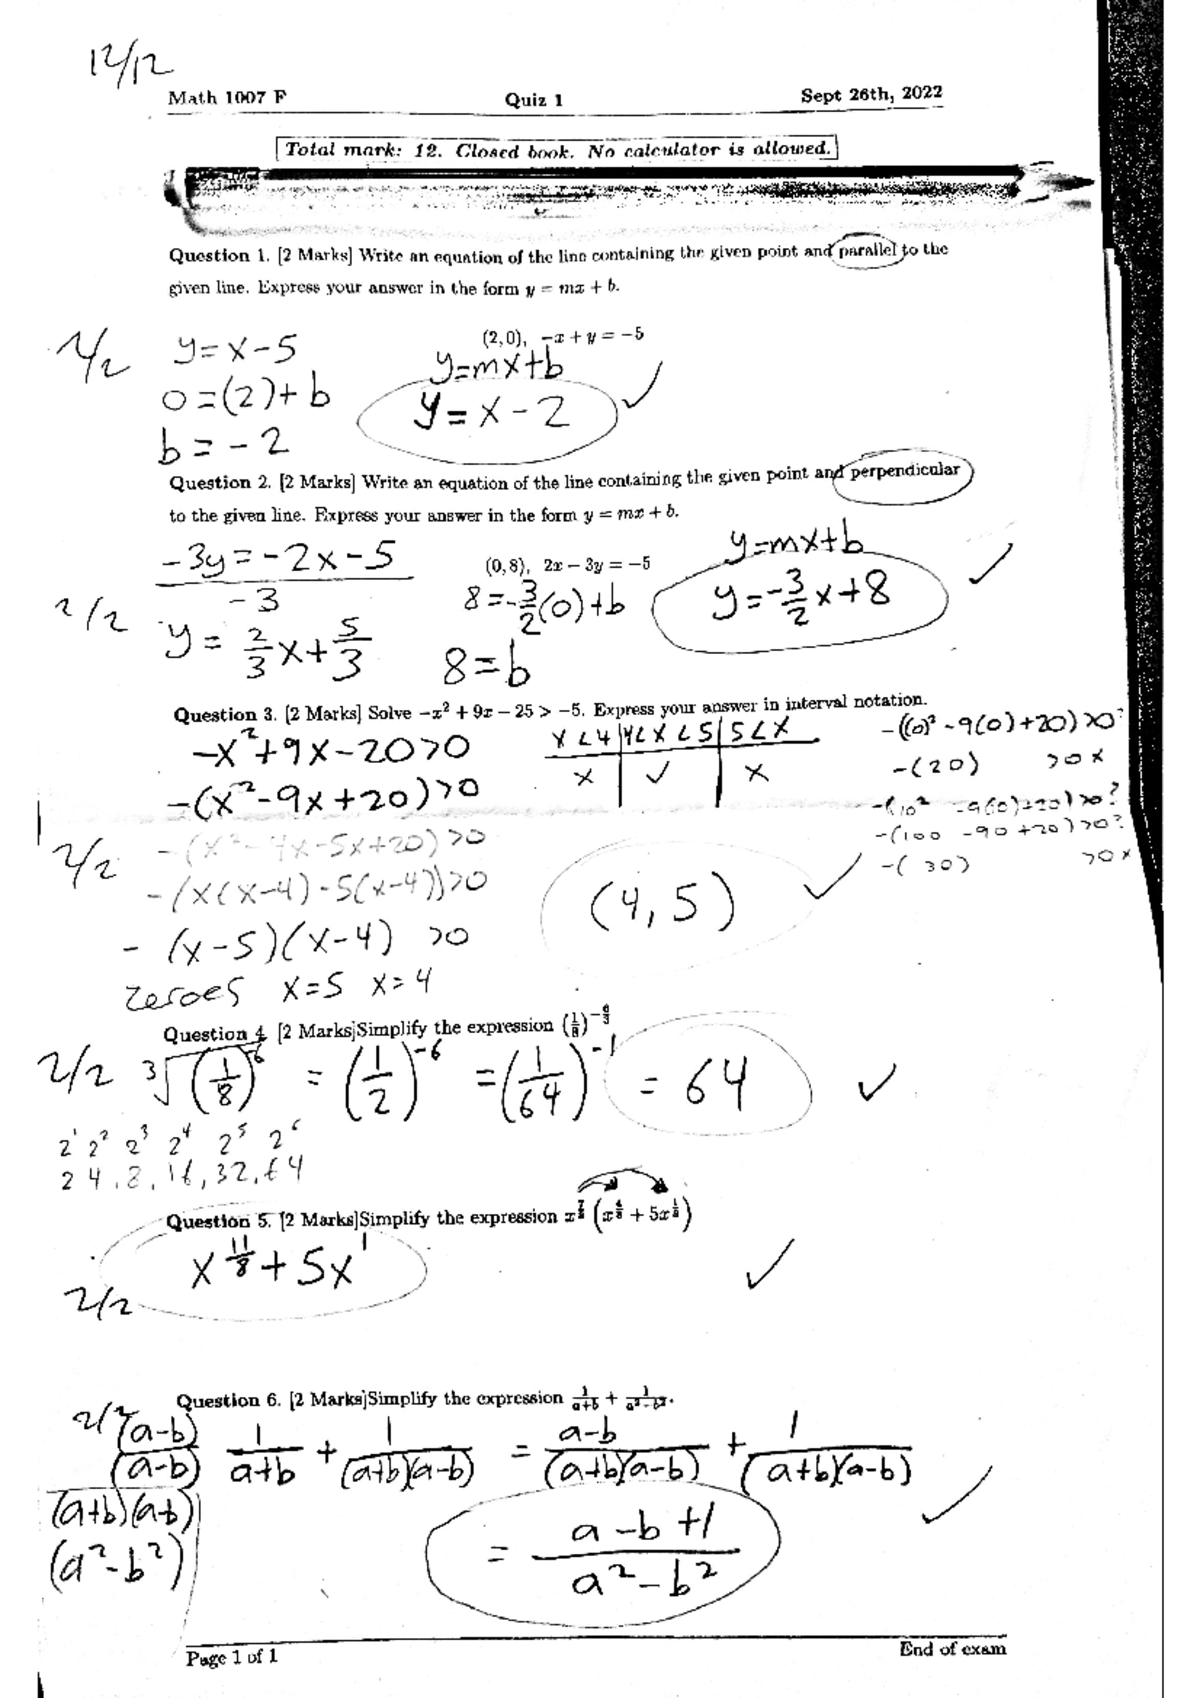 12/12
Math 1007 F Quiz 1 Sept 26th, 2022
Total mark: 12. Closed book. No calculator is allowed.
Question 1. [2 Marks] Write an equation of the line containing the given point and parallel to the
given line. Express your answer in the form y = mx + b.
(2,0), -x + y = -5
2/2 y=x-5 y=mx+b
0=(2)+b y=x-2 ✓
b=-2
Question 2. [2 Marks] Write an equation of the line containing the given point and perpendicular
to the given line. Express your answer in the form y = mx + b.
-3y=-2x-5 (0,8), 2x - 3y = -5 y=mx+b
-3 8=-3/2(0)+b y=-3/2x+8 ✓
2/2 y=2/3x+5/3 8=b
Question 3. [2 Marks] Solve -x² + 9x - 25 > -5. Express your answer in interval notation.
-x²+9x-20>0 x<4 | 4<x<5 | 5<x -((0)²-9(0)+20)>0?
-(x²-9x+20)>0 x | ✓ | x -(20) >0 x
-(x²-4x-5x+20)>0 -(10²-9(10)+20)>0?
2/2 -(x(x-4)-5(x-4))>0 -(100-90+20)>0?
-(x-5)(x-4) >0 (4,5) ✓ -(30) >0 x
zeroes x=5 x=4
Question 4. [2 Marks]Simplify the expression (1/8)^(-6/3)
2/2 ³√(1/8)^-6 = (1/2)^-6 = (1/64)^-1 = 64 ✓
2¹ 2² 2³ 2⁴ 2⁵ 2⁶
2 4, 8, 16, 32, 64
Question 5. [2 Marks]Simplify the expression x^(7/8) (x^(4/8) + 5x^(1/8))
x^(11/8)+5x¹ ✓
2/2
Question 6. [2 Marks]Simplify the expression 1/(a+b) + 1/(a²-b²).
2/2 (a-b)/(a-b) 1/(a+b) + 1/((a+b)(a-b)) = (a-b)/((a+b)(a-b)) + 1/((a+b)(a-b))
(a+b)(a-b)
(a²-b²) = (a-b+1)/(a²-b²) ✓
Page 1 of 1 End of exam